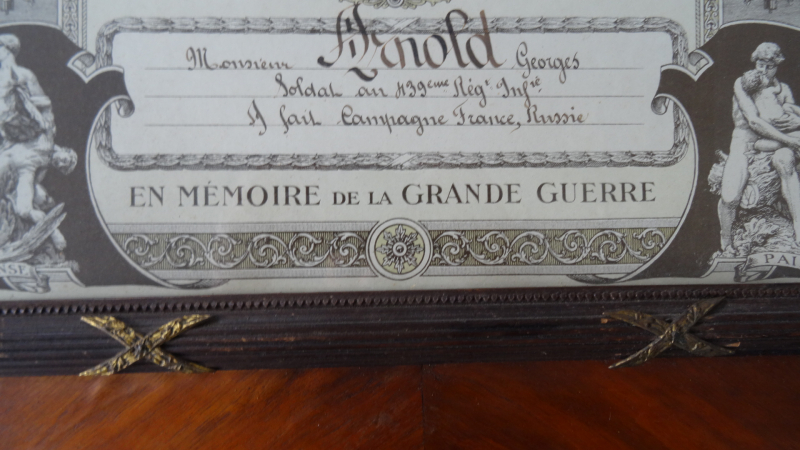 Monsieur Arnold Georges
Soldat au 439ème Régt Infrie
A fait Campagne France, Russie
EN MÉMOIRE DE LA GRANDE GUERRE